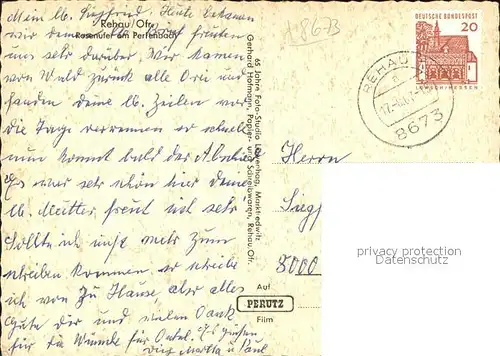 Mein lb. Siegfried. Heute bekamen
Rehau/Ofr.
Rosenufer am Perlenbach
wir deinen lb. Brief freuten
uns sehr darüber. Wir kamen
von Wald zurück alle Ori und
fanden deine lb. Zeilen vor
die Tage verrennen so schnell
nun kommt bald der Abschied
Es war sehr schön hier deine
lb. Mutter freut sich sehr
Sollte ich nicht mehr zum
schreiben kommen, so schreibe
ich von zu Hause, aber alles
Gute dir und vielen Dank
für die Wünsche für Onkel. Es grüßen
Dich Martha u Paul
65 Jahre Foto-Studio Löwenhag, Marktredwitz
Gerhard Hofmann, Papier- und Schreibwaren, Rehau/Ofr.
8673
DEUTSCHE BUNDESPOST
20
LORSCH/HESSEN
REHAU
8673
Herrn
8000
Auf
PERUTZ
Film
privacy protection
copyright protection